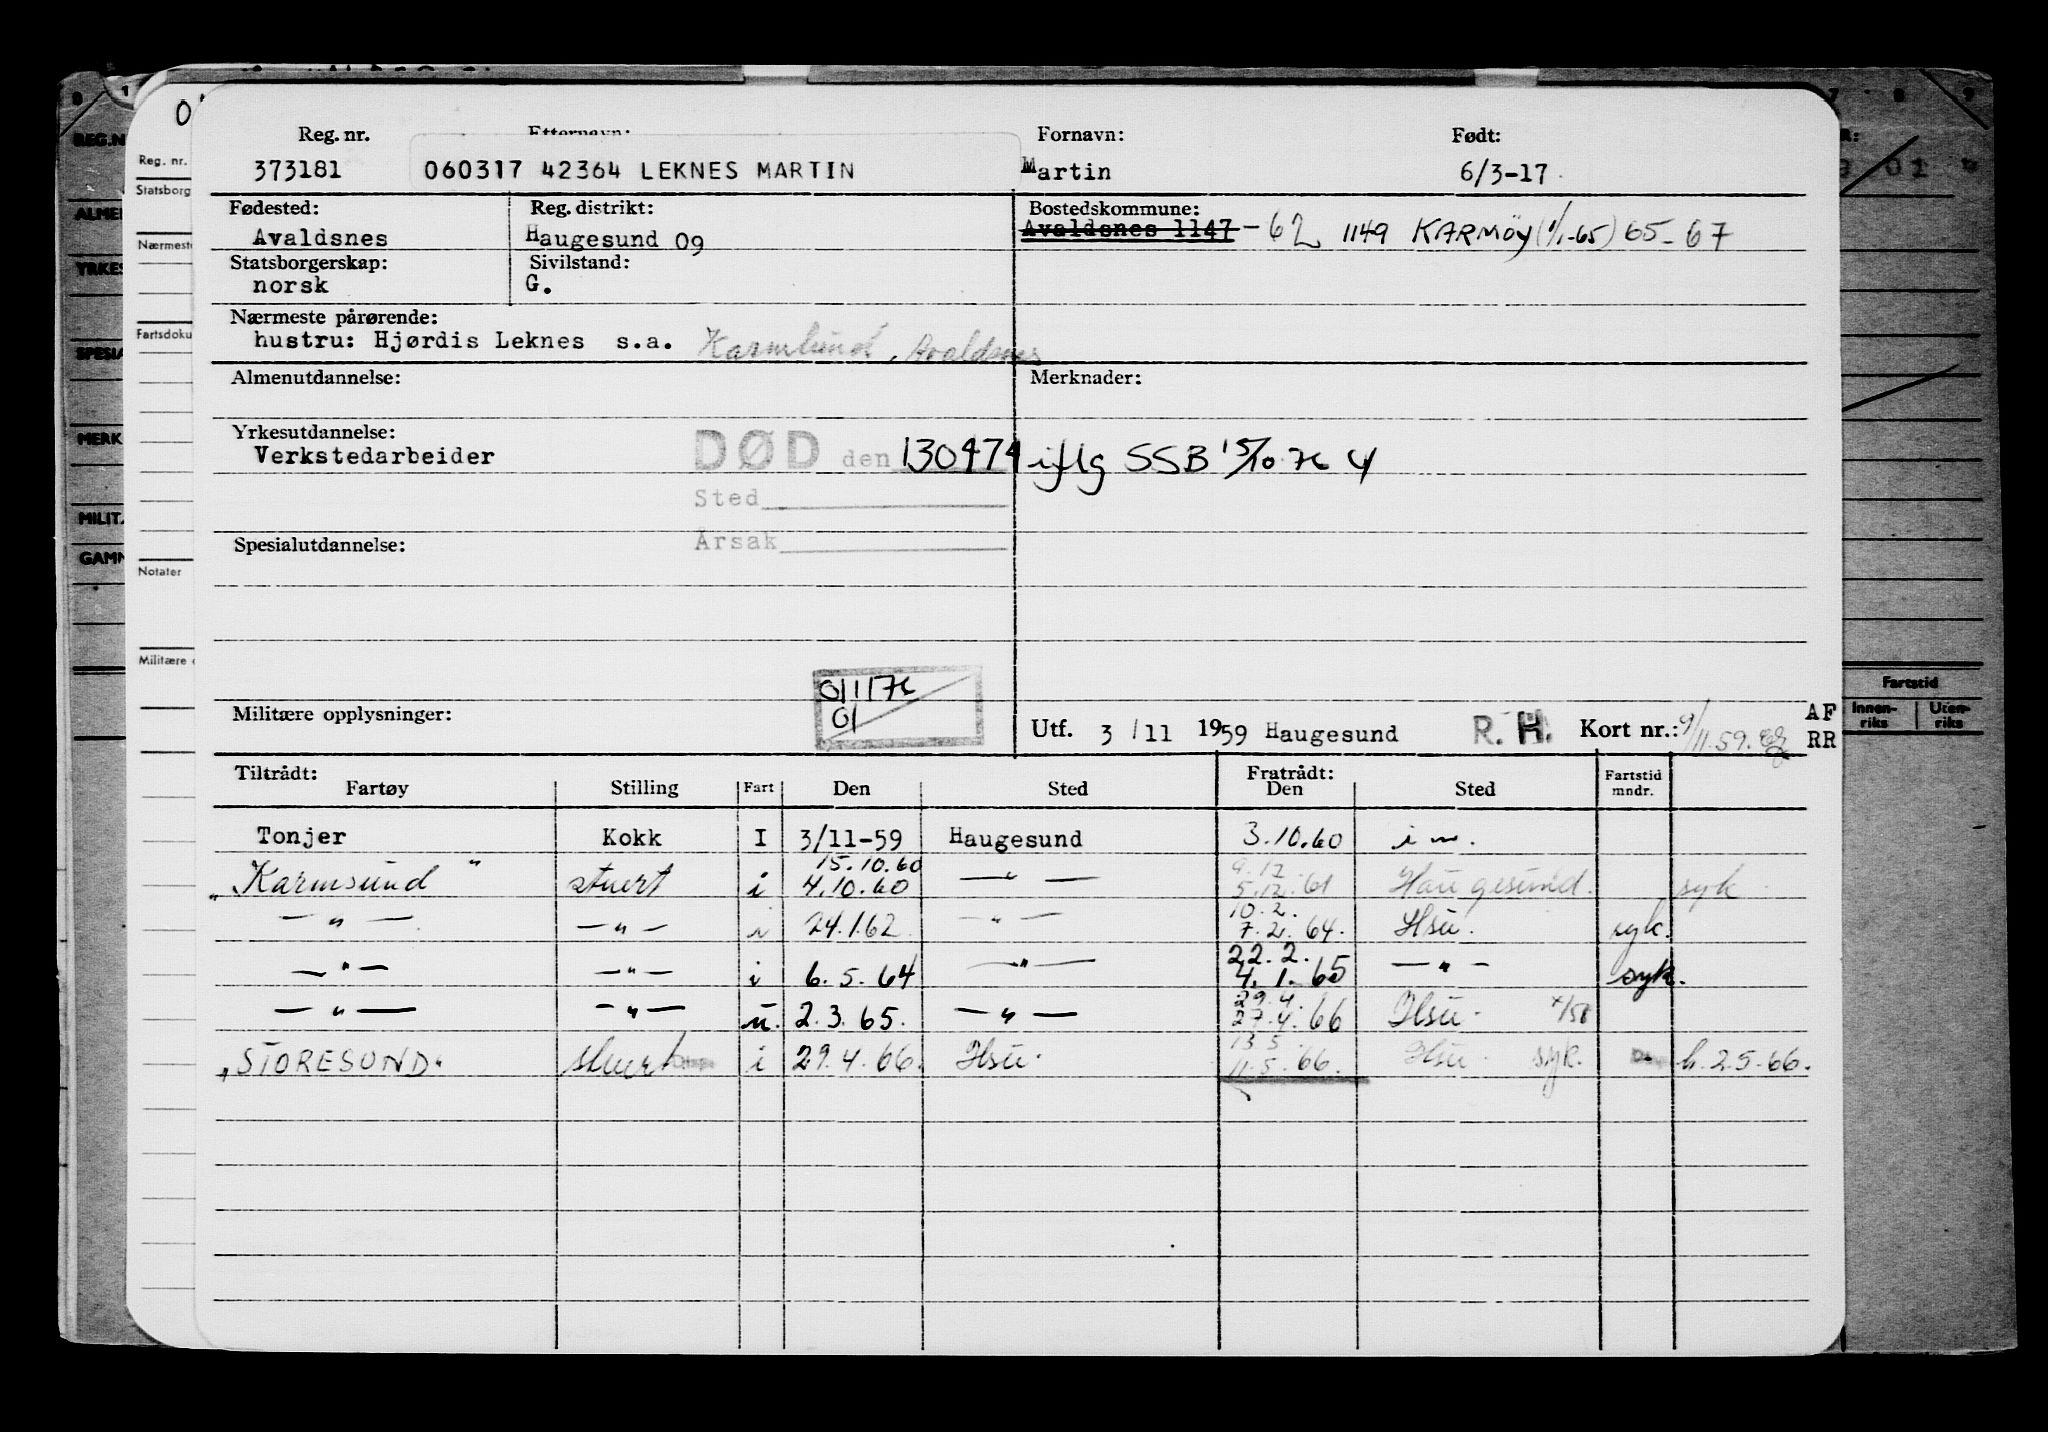 Reg. nr. Etternavn: Fornavn: Født:
373181 060317 42364 LEKNES MARTIN Martin 6/3-17.
Fødested: Reg. distrikt: Bostedskommune:
Avaldsnes Haugesund 09 Avaldsnes 1147 - 62 1149 KARMØY (1/1-65) 65-67
Statsborgerskap: Sivilstand:
norsk G.
Nærmeste pårørende:
hustru: Hjørdis Leknes s.a. Karmlund, Avaldsnes
Almenutdannelse: Merknader:
Yrkesutdannelse:
Verkstedarbeider DØD den 130474 iflg SSB 15/10-76
Sted
Årsak
Spesialutdannelse:
011176
01
Militære opplysninger: Utf. 3/11 1959 Haugesund R. H. Kort nr.: 9/11.59. AF
RR
Tiltrådt: Fratrådt:
Fartøy Stilling Fart Den Sted Den Sted Fartstid mndr.
Tonjer Kokk I 3/11-59 Haugesund 3.10.60 i m.
15.10.60 9.12
"Karmsund" stuert i 4.10.60 —"— 5.12.61 Haugesund. syk.
10.2.
—"— —"— i 24.1.62 —"— 7.2.64. Hsu. syk.
22.2.
—"— —"— i 6.5.64 —"— 4.1.65 —"— syk.
29.4.
—"— —"— u. 2.3.65. —"— 27.4.66 Hsu.
13.5.
"STORESUND" stuert i 29.4.66. Hsu. 11.5.66. Hsu. syk. h. 2.5.66.
Reg. nr.
Statsborg
Nærmeste
Fartsdoku
Notater
Militære
REG.N
ALMEN
YRKES
SPESIA
MERK
MILIT
GAMM
Fartstid
Innen-riks Uten-riks